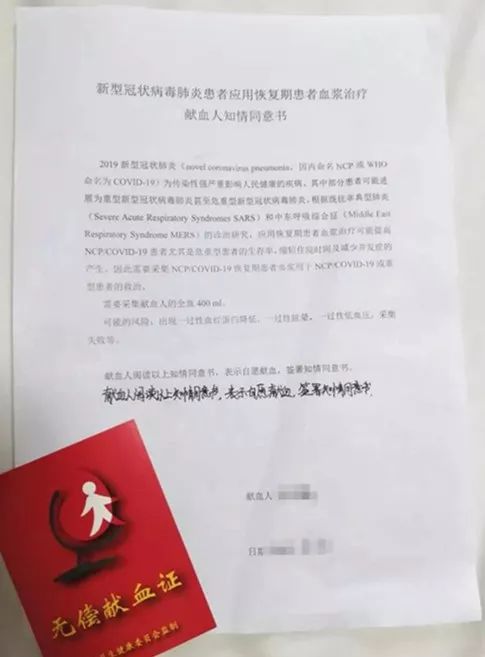 新型冠状病毒肺炎患者应用恢复期患者血浆治疗
献血人知情同意书
2019 新型冠状肺炎（novel coronavirus pneumonia，国内命名 NCP 或 WHO
命名为 COVID-19）为传染性强严重影响人民健康的疾病，其中部分患者可能进
展为重型新型冠状病毒肺炎甚至危重型新型冠状病毒肺炎。根据既往非典型肺炎
（Severe Acute Respiratory Syndromes SARS）和中东呼吸综合征（Middle East
Respiratory Syndrome MERS）的诊治研究，应用恢复期患者血浆治疗可能提高
NCP/COVID-19 患者尤其是危重型患者的生存率，缩短住院时间及减少并发症的
产生。因此需要采集 NCP/COVID-19 恢复期患者血浆用于 NCP/COVID-19 或重
型患者的救治。
需要采集献血人的全血 400 ml。
可能的风险：出现一过性血红蛋白降低、一过性眩晕、一过性低血压，采集
失败等。
献血人阅读以上知情同意书，表示自愿献血，签署知情同意书。
献血人阅读以上知情同意书，表示自愿献血，签署知情同意书。
献血人
日期
无偿献血证
生健康委员会监制